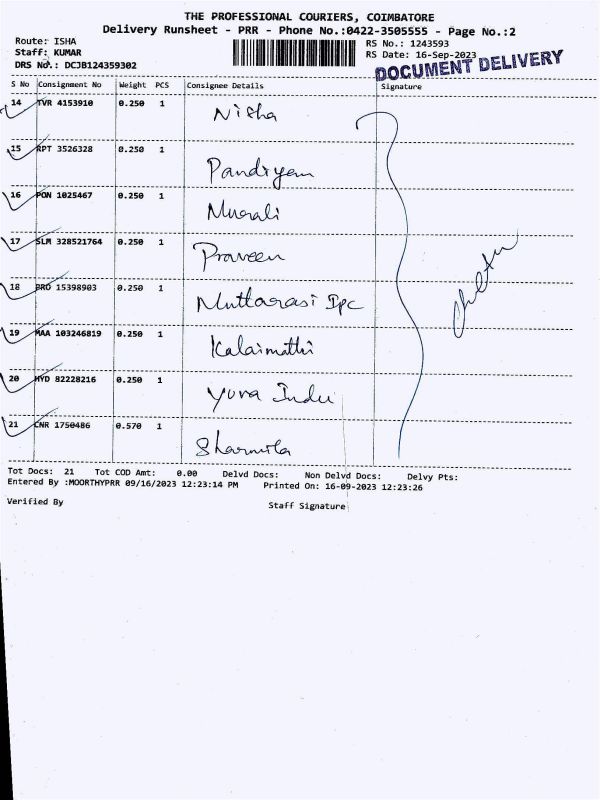 THE PROFESSIONAL COURIERS, COIMBATORE
Delivery Runsheet - PRR - Phone No.:0422-3505555 - Page No.:2
Route: ISHA
Staff: KUMAR
DRS No.: DCJB124359302
RS No.: 1243593
RS Date: 16-Sep-2023
DOCUMENT DELIVERY
S No Consignment No Weight PCS Consignee Details Signature
14 TVR 4153910 0.250 1 Nisha
15 RPT 3526328 0.250 1 Pandiyan
16 PON 1025467 0.250 1 Murali
17 SLM 328521764 0.250 1 Praveen
18 BRD 15398903 0.250 1 Muttarasi Ipc
19 MAA 103246819 0.250 1 Kalaimathi
20 HYD 82228216 0.250 1 Yuva Indu
21 CNR 1750486 0.570 1 Sharmila
Tot Docs: 21 Tot COD Amt: 0.00 Delvd Docs: Non Delvd Docs: Delvy Pts:
Entered By :MOORTHYPRR 09/16/2023 12:23:14 PM Printed On: 16-09-2023 12:23:26
Verified By Staff Signature